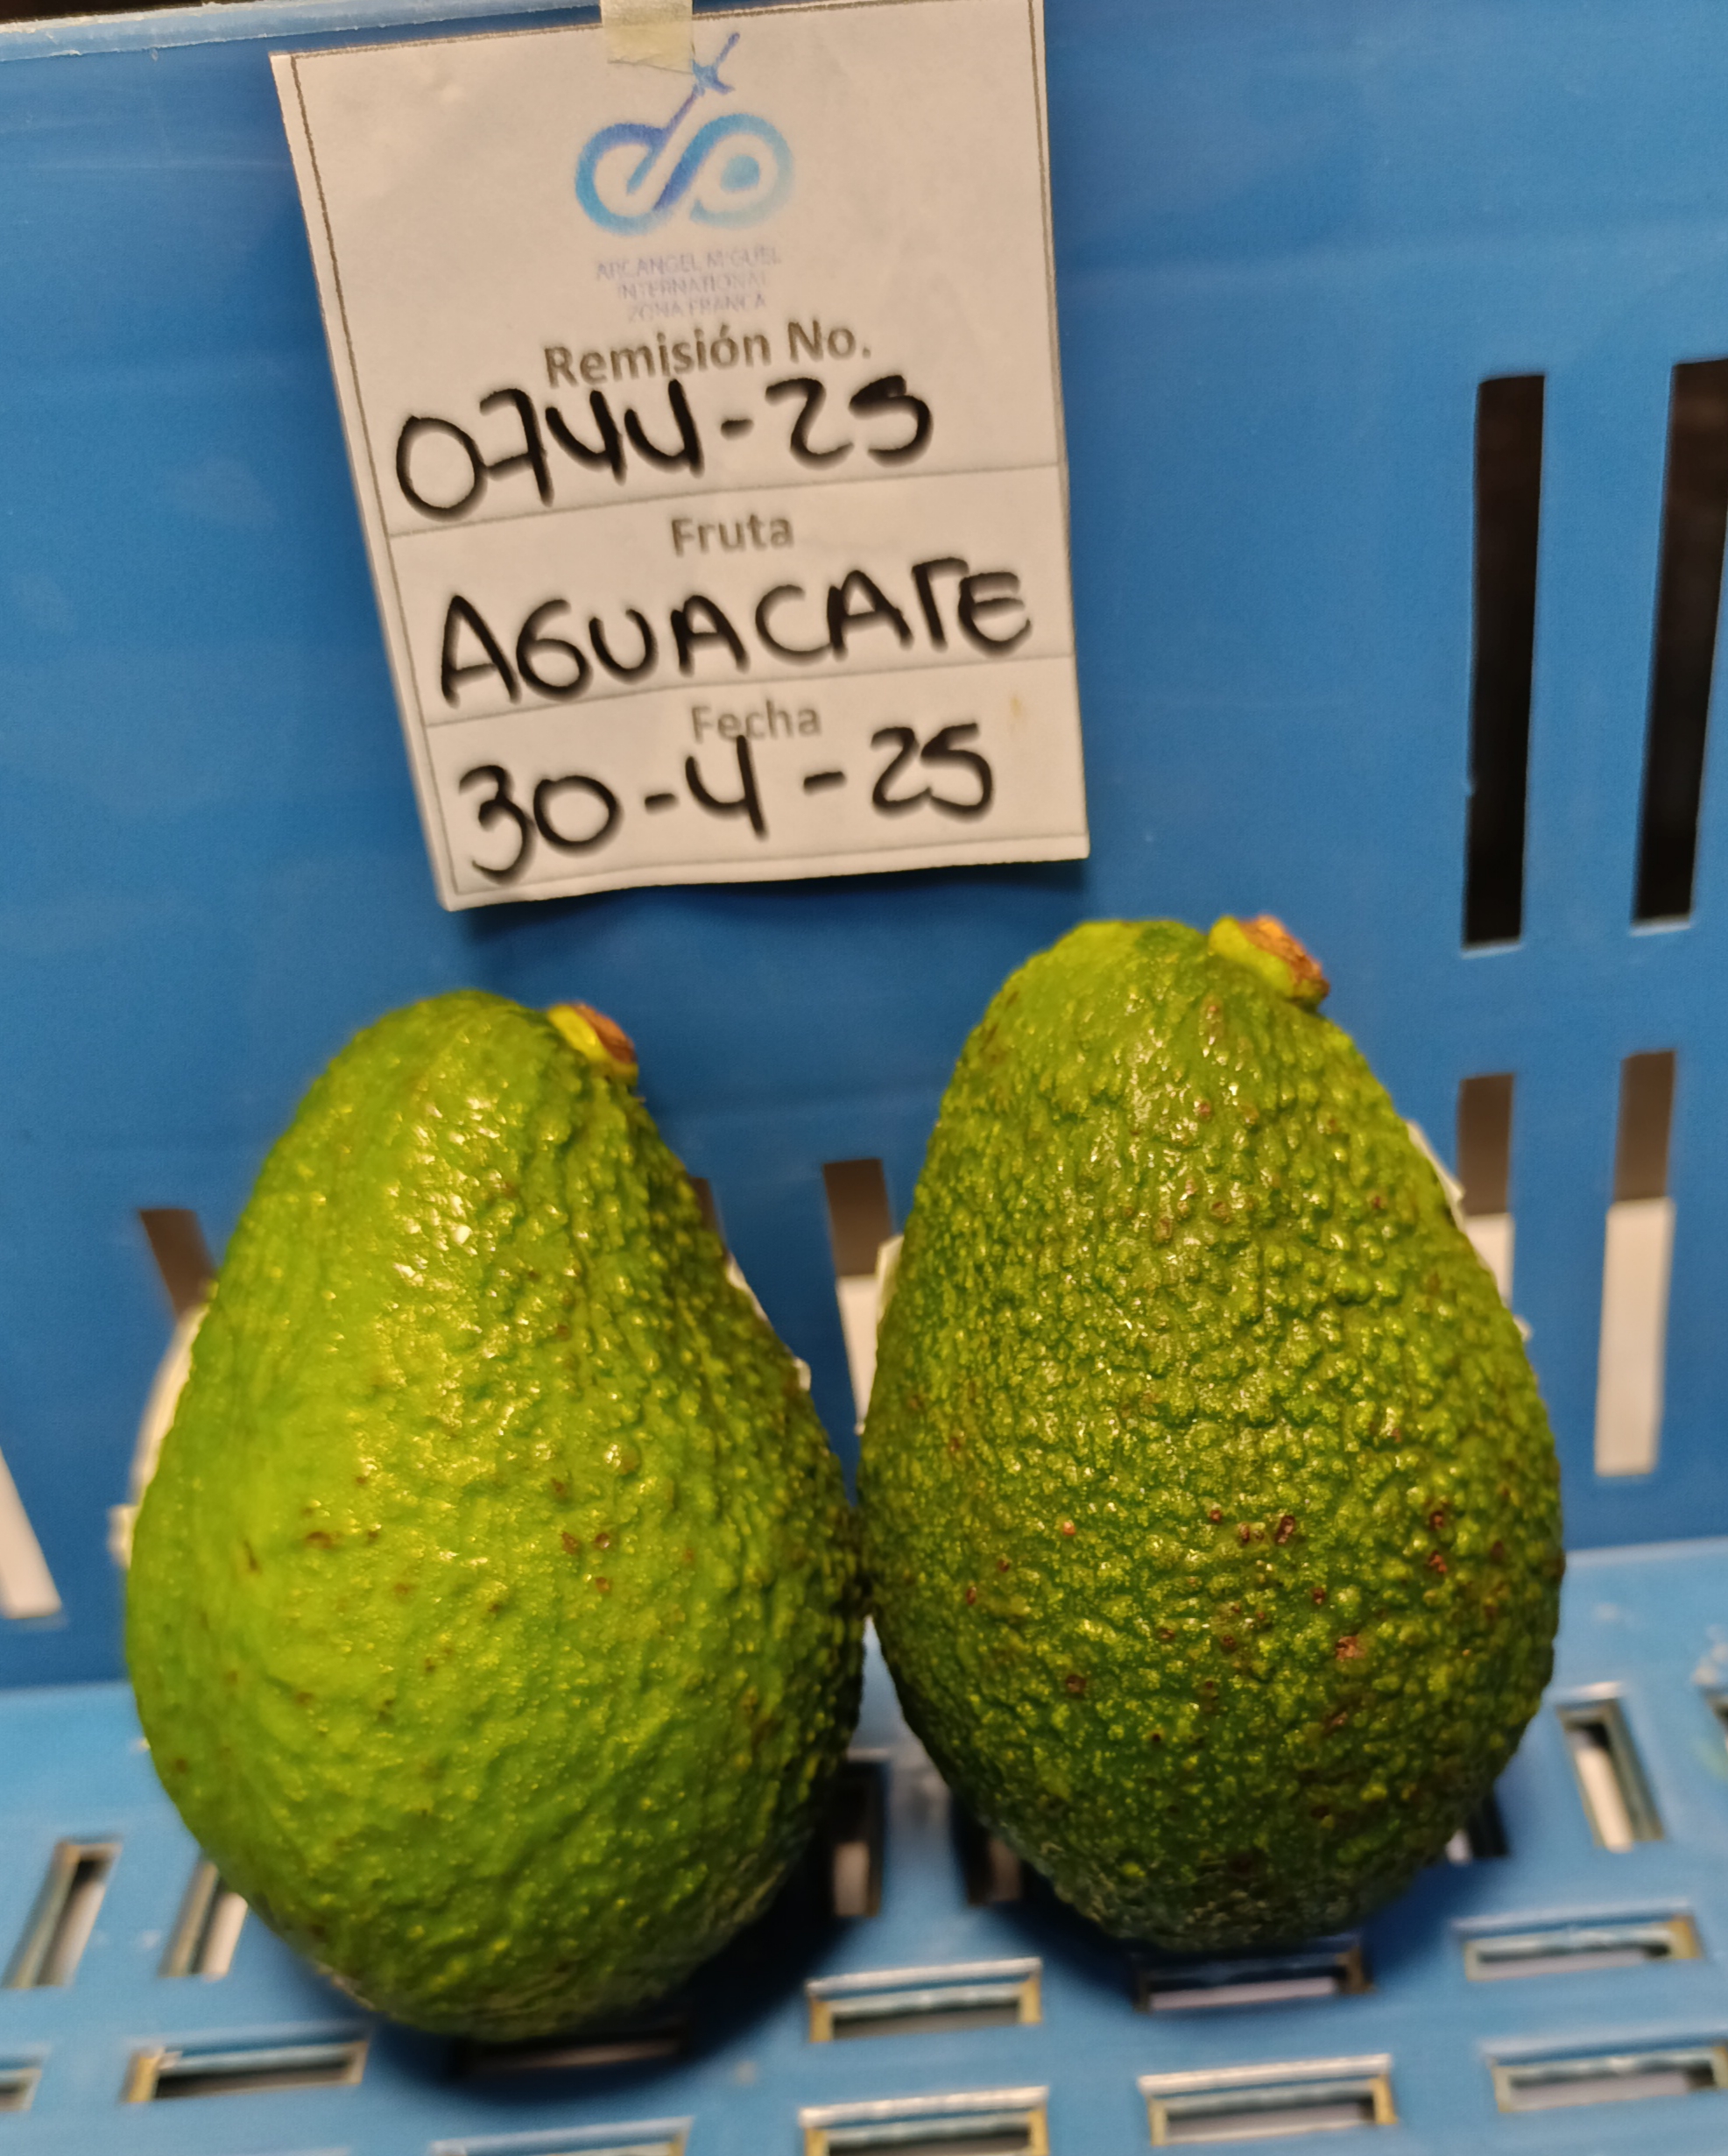 ARCANGEL MIGUEL
INTERNATIONAL
ZONA FRANCA
Remisión No.
0744-25
Fruta
AGUACATE
Fecha
30-4-25